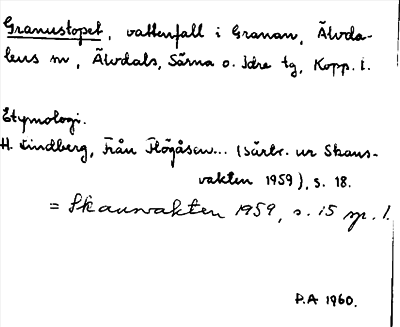 Granustopet, vattenfall i Granan, Älvda-
lens sn, Älvdals, Särna o. Idre tg, Kopp. l.
Etymologi.
H. Lindberg, Från Flögåsen... (särtr. ur Skans-
vakten 1959), s. 18.
= Skansvakten 1959, s. 15 sp. 1.
P.A 1960.